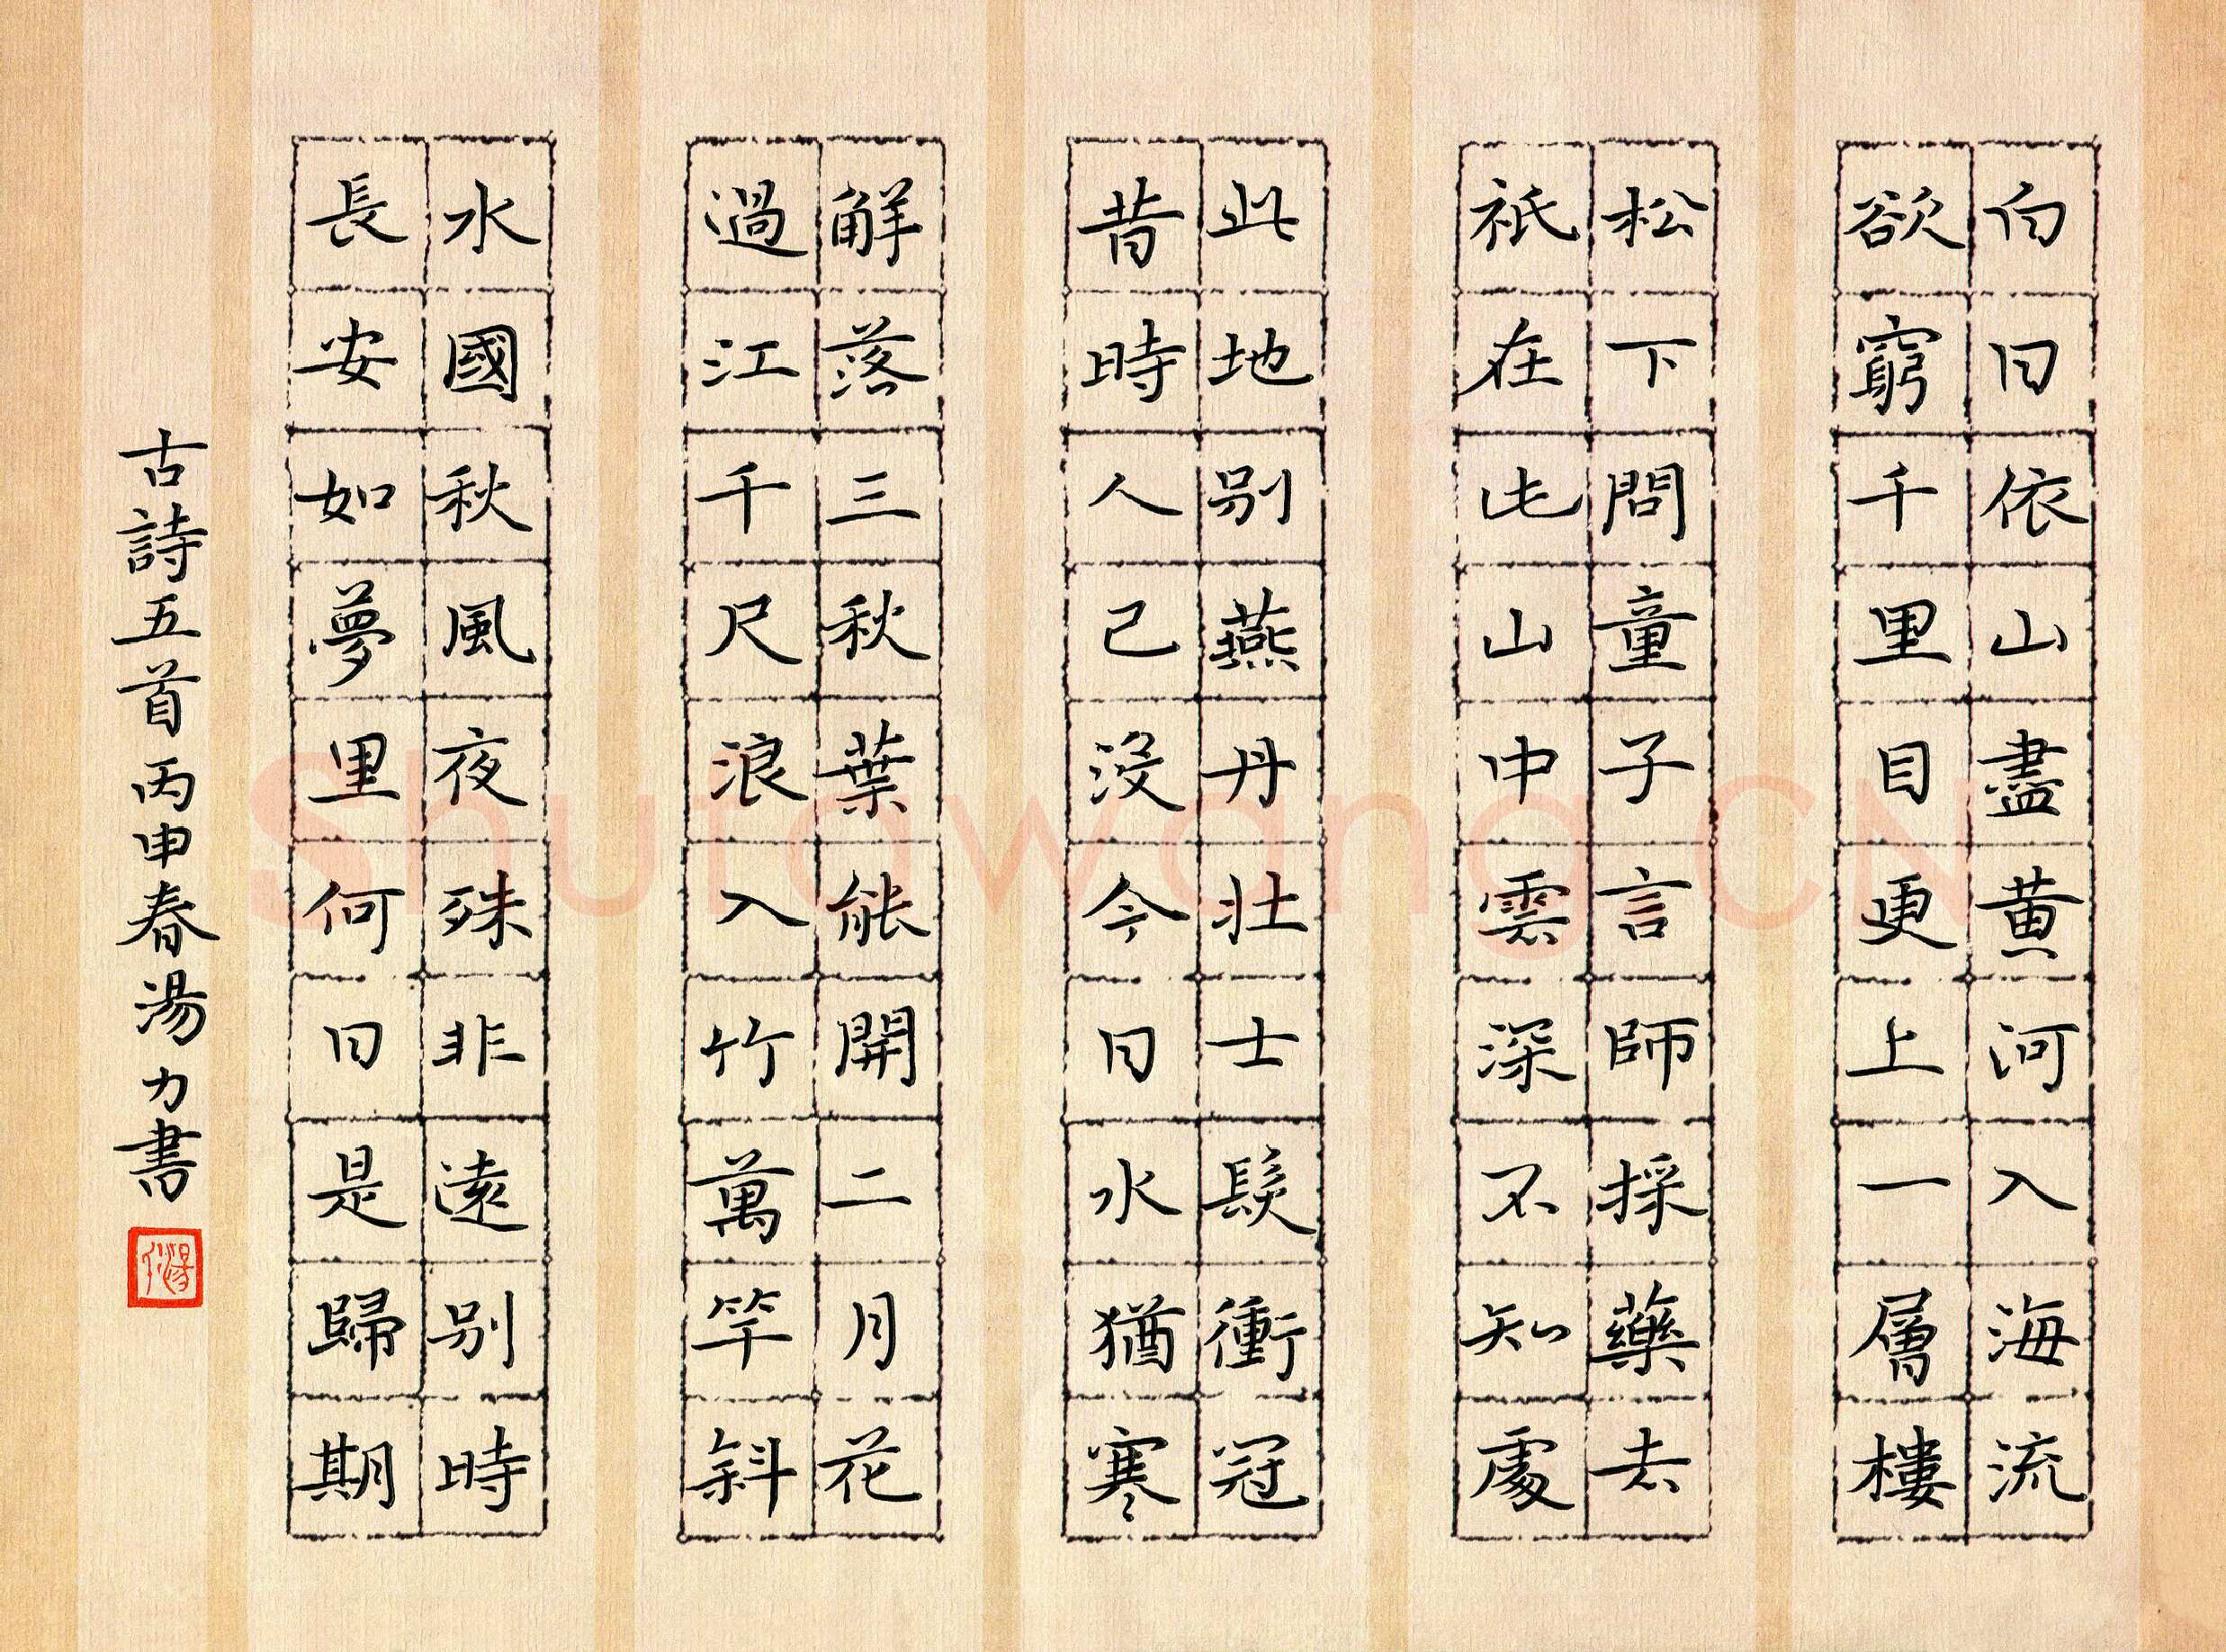 白日依山盡黄河入海流
欲窮千里目更上一層樓
松下問童子言師採藥去
祇在此山中雲深不知處
此地别燕丹壮士髮衝冠
昔時人已没今日水猶寒
解落三秋葉能開二月花
過江千尺浪入竹萬竿斜
水國秋風夜殊非遠别時
長安如夢里何日是歸期
古詩五首丙申春湯力書
Shufawang.CN